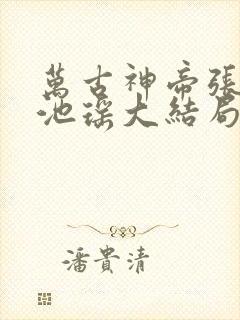 萬古神帝張
池瑤大結局
潘貴清